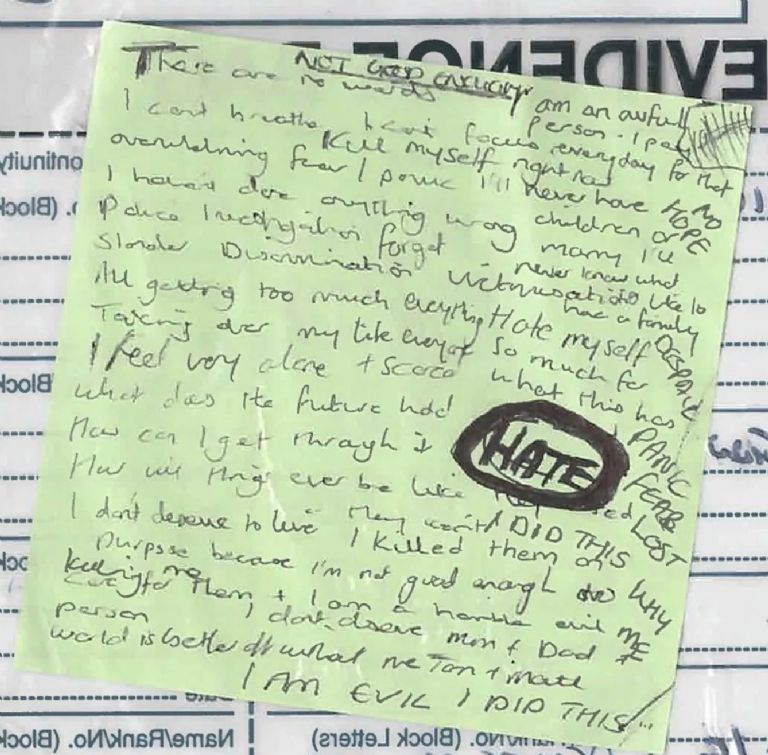 EVIDENCE
NOT GOOD ENOUGH
There are no words
I am an awful person. I pay everyday for that
I can't breathe I can't focus
Kill myself right now
overwhelming fear / panic I'll never have NO HOPE
children or marry I'll never know what
I haven't done anything wrong
its like to have a family
Police Investigation forget
Slander Discrimination Victimisation
All getting too much everything Hate myself DESPAIR
Taking over my life everyday so much for what this has
I feel very alone + scared
PANIC
what does the future hold
HATE
FEAR
How can I get through it
LOST
How will things ever be like
I DID THIS
I don't deserve to live I killed them on
WHY ME
purpose because I'm not good enough to
care for them + I am a horrible evil
person I don't deserve mum + Dad +
world is better off without me
I AM EVIL I DID THIS
Name/Rank/No. (Block
No. (Block Letters)